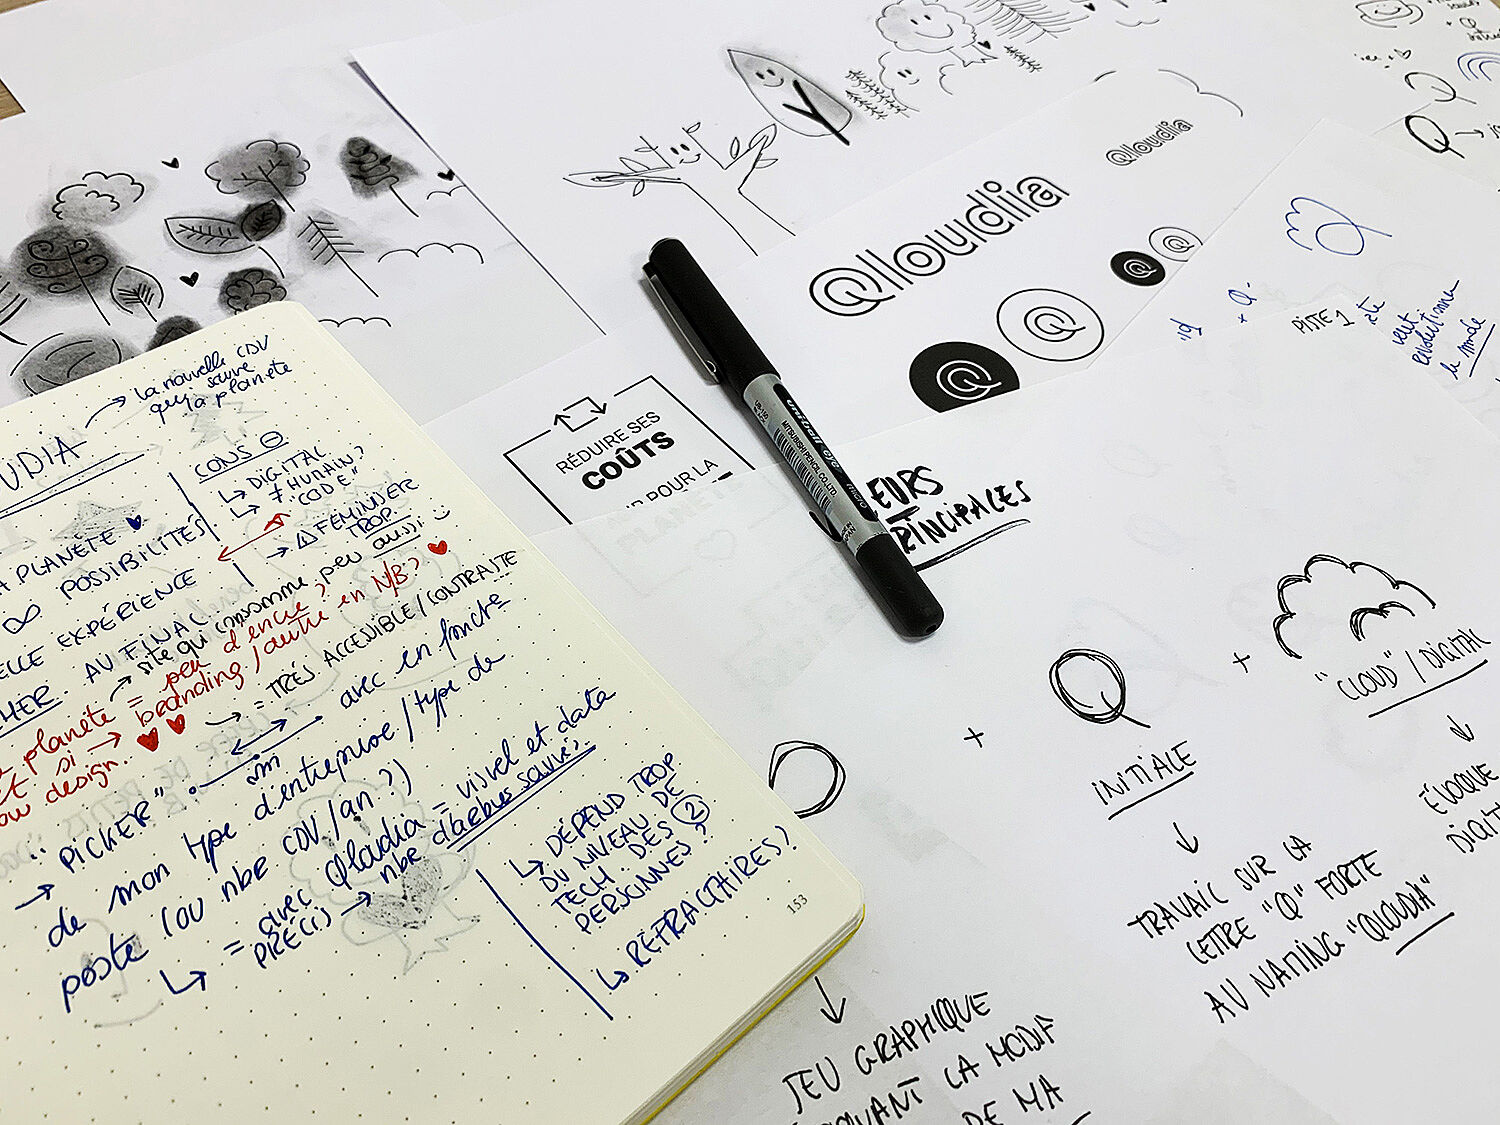 la nouvelle CDV
qui sauve
la planète
UDIA
CONS ⊖
↳ DIGITAL
≠ HUMAIN?
↳ "CODE"
→ △ FÉMINISER
TROP.
A PLANÈTE
∞ POSSIBILITÉS
ELLE EXPÉRIENCE
AU FINAL
HER.
site qui consomme peu aussi
planète = peu d'encre ?
et si → branding / autre en N/B?
ou design.
→ = TRÈS ACCESSIBLE / CONTRASTE
→ "PICKER"
avec en fonction
de mon type d'entreprise / type de
poste (ou nbr CDV/an ?)
↳ = avec Qloudia = visuel et data
PRÉCIS → nbr d'arbres sauvés.
↳ DÉPEND TROP
DU NIVEAU DE
TECH DES 2
PERSONNES ?
↳ RÉFRACTAIRES?
153
RÉDUIRE SES
COÛTS
POUR LA
PLANÈTE
uni-ball eye micro
UB-150
MITSUBISHI PENCIL CO.LTD
Qlloudiia
Qlloudiia
Q
Q
Q
Q
Q →
PISTE 1
veut
révolutionner
le monde
EURS
RINCIPALES
+
Q
+
INITIALE
↓
TRAVAIL SUR LA
LETTRE "Q" FORTE
AU NAMING "QLOUDIA"
"CLOUD" / DIGITAL
↓
ÉVOQUE
DIGIT
↓
JEU GRAPHIQUE
LA MODIF
DE MA